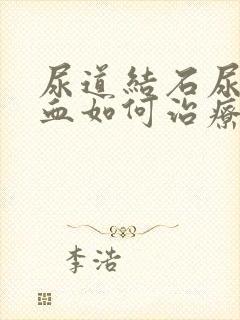 尿道結石尿
血如何治療
李浩